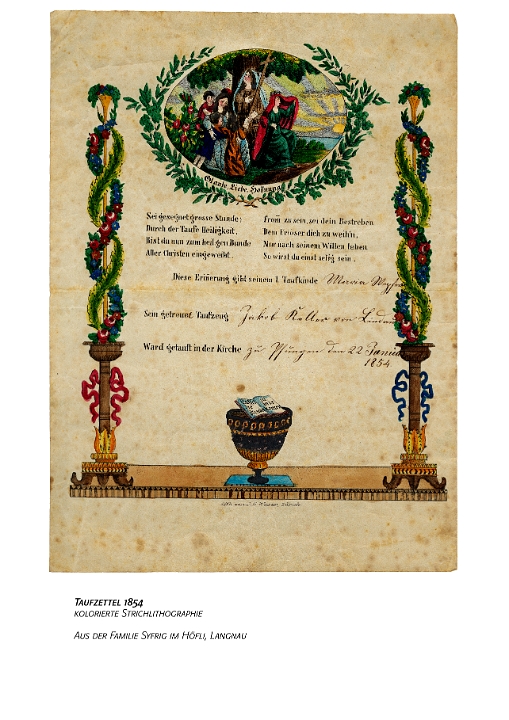 Glaube, Liebe, Hofnung
Sei gesegnet grosse Stunde;
Durch der Taufe Heiligkeit,
Bist du nun zum heil'gen Bunde
Aller Christen eingeweiht.
From zu sein, sei dein Bestreben
Dem Erlöser dich zu weih'n,
Nur nach seinem Willen leben
So wirst du einst selig sein.
Diese Erinerung gibt seinem l. Taufkinde Maria
Sein getreuer Taufzeug Jakob Keller von
Ward getauft in der Kirche zu Pfungen den 22 Januar
1854
Taufzettel 1854
kolorierte Strichlithographie
Aus der Familie Syfrig im Höfli, Langnau